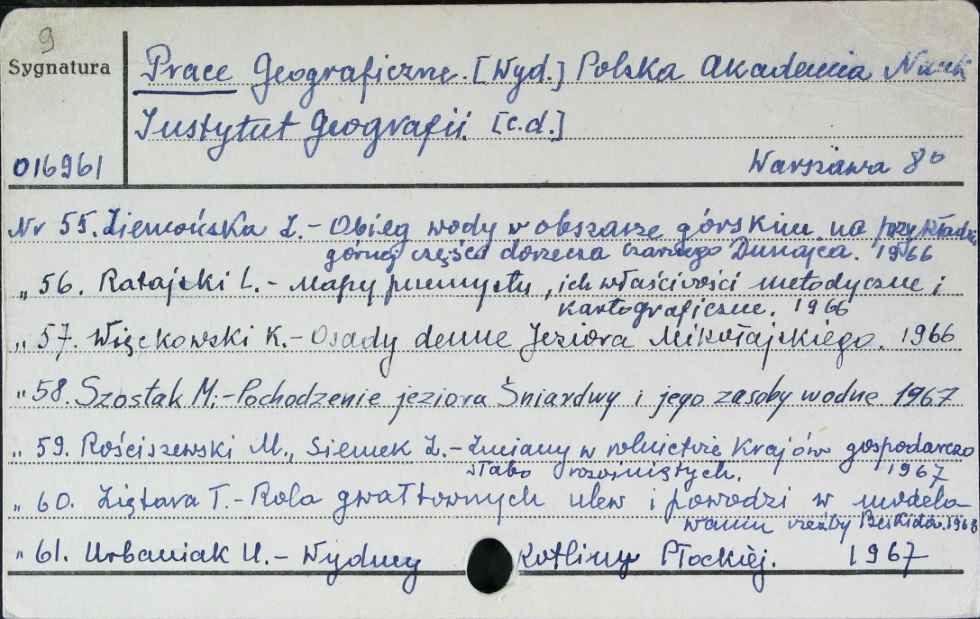 9
Sygnatura
Prace Geograficzne. [Wyd.] Polska Akademia Nauk
Instytut Geografii. [c.d.]
016961
Warszawa 8°
Nr 55. Ziemońska Z.- Obieg wody w obszarze górskim na przykładzie
górnej części dorzecza Czarnego Dunajca. 1966
" 56. Ratajski L.- Mapy przemysłu, ich właściwości metodyczne i
kartograficzne. 1966
" 57. Więckowski K.- Osady denne Jeziora Mikołajskiego. 1966
" 58. Szostak M.- Pochodzenie jeziora Śniardwy i jego zasoby wodne 1967
" 59. Rościszewski M., Siemek Z.- Zmiany w rolnictwie Krajów gospodarczo
słabo rozwiniętych. 1967
" 60. Ziętara T.- Rola gwałtownych ulew i powodzi w modelo-
waniu rzeźby Beskidów. 1968
" 61. Urbaniak U.- Wydmy Kotliny Płockiej. 1967